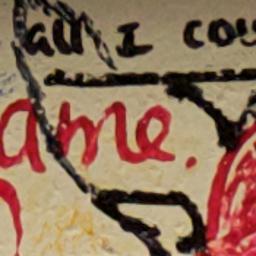 all I cou
ame.